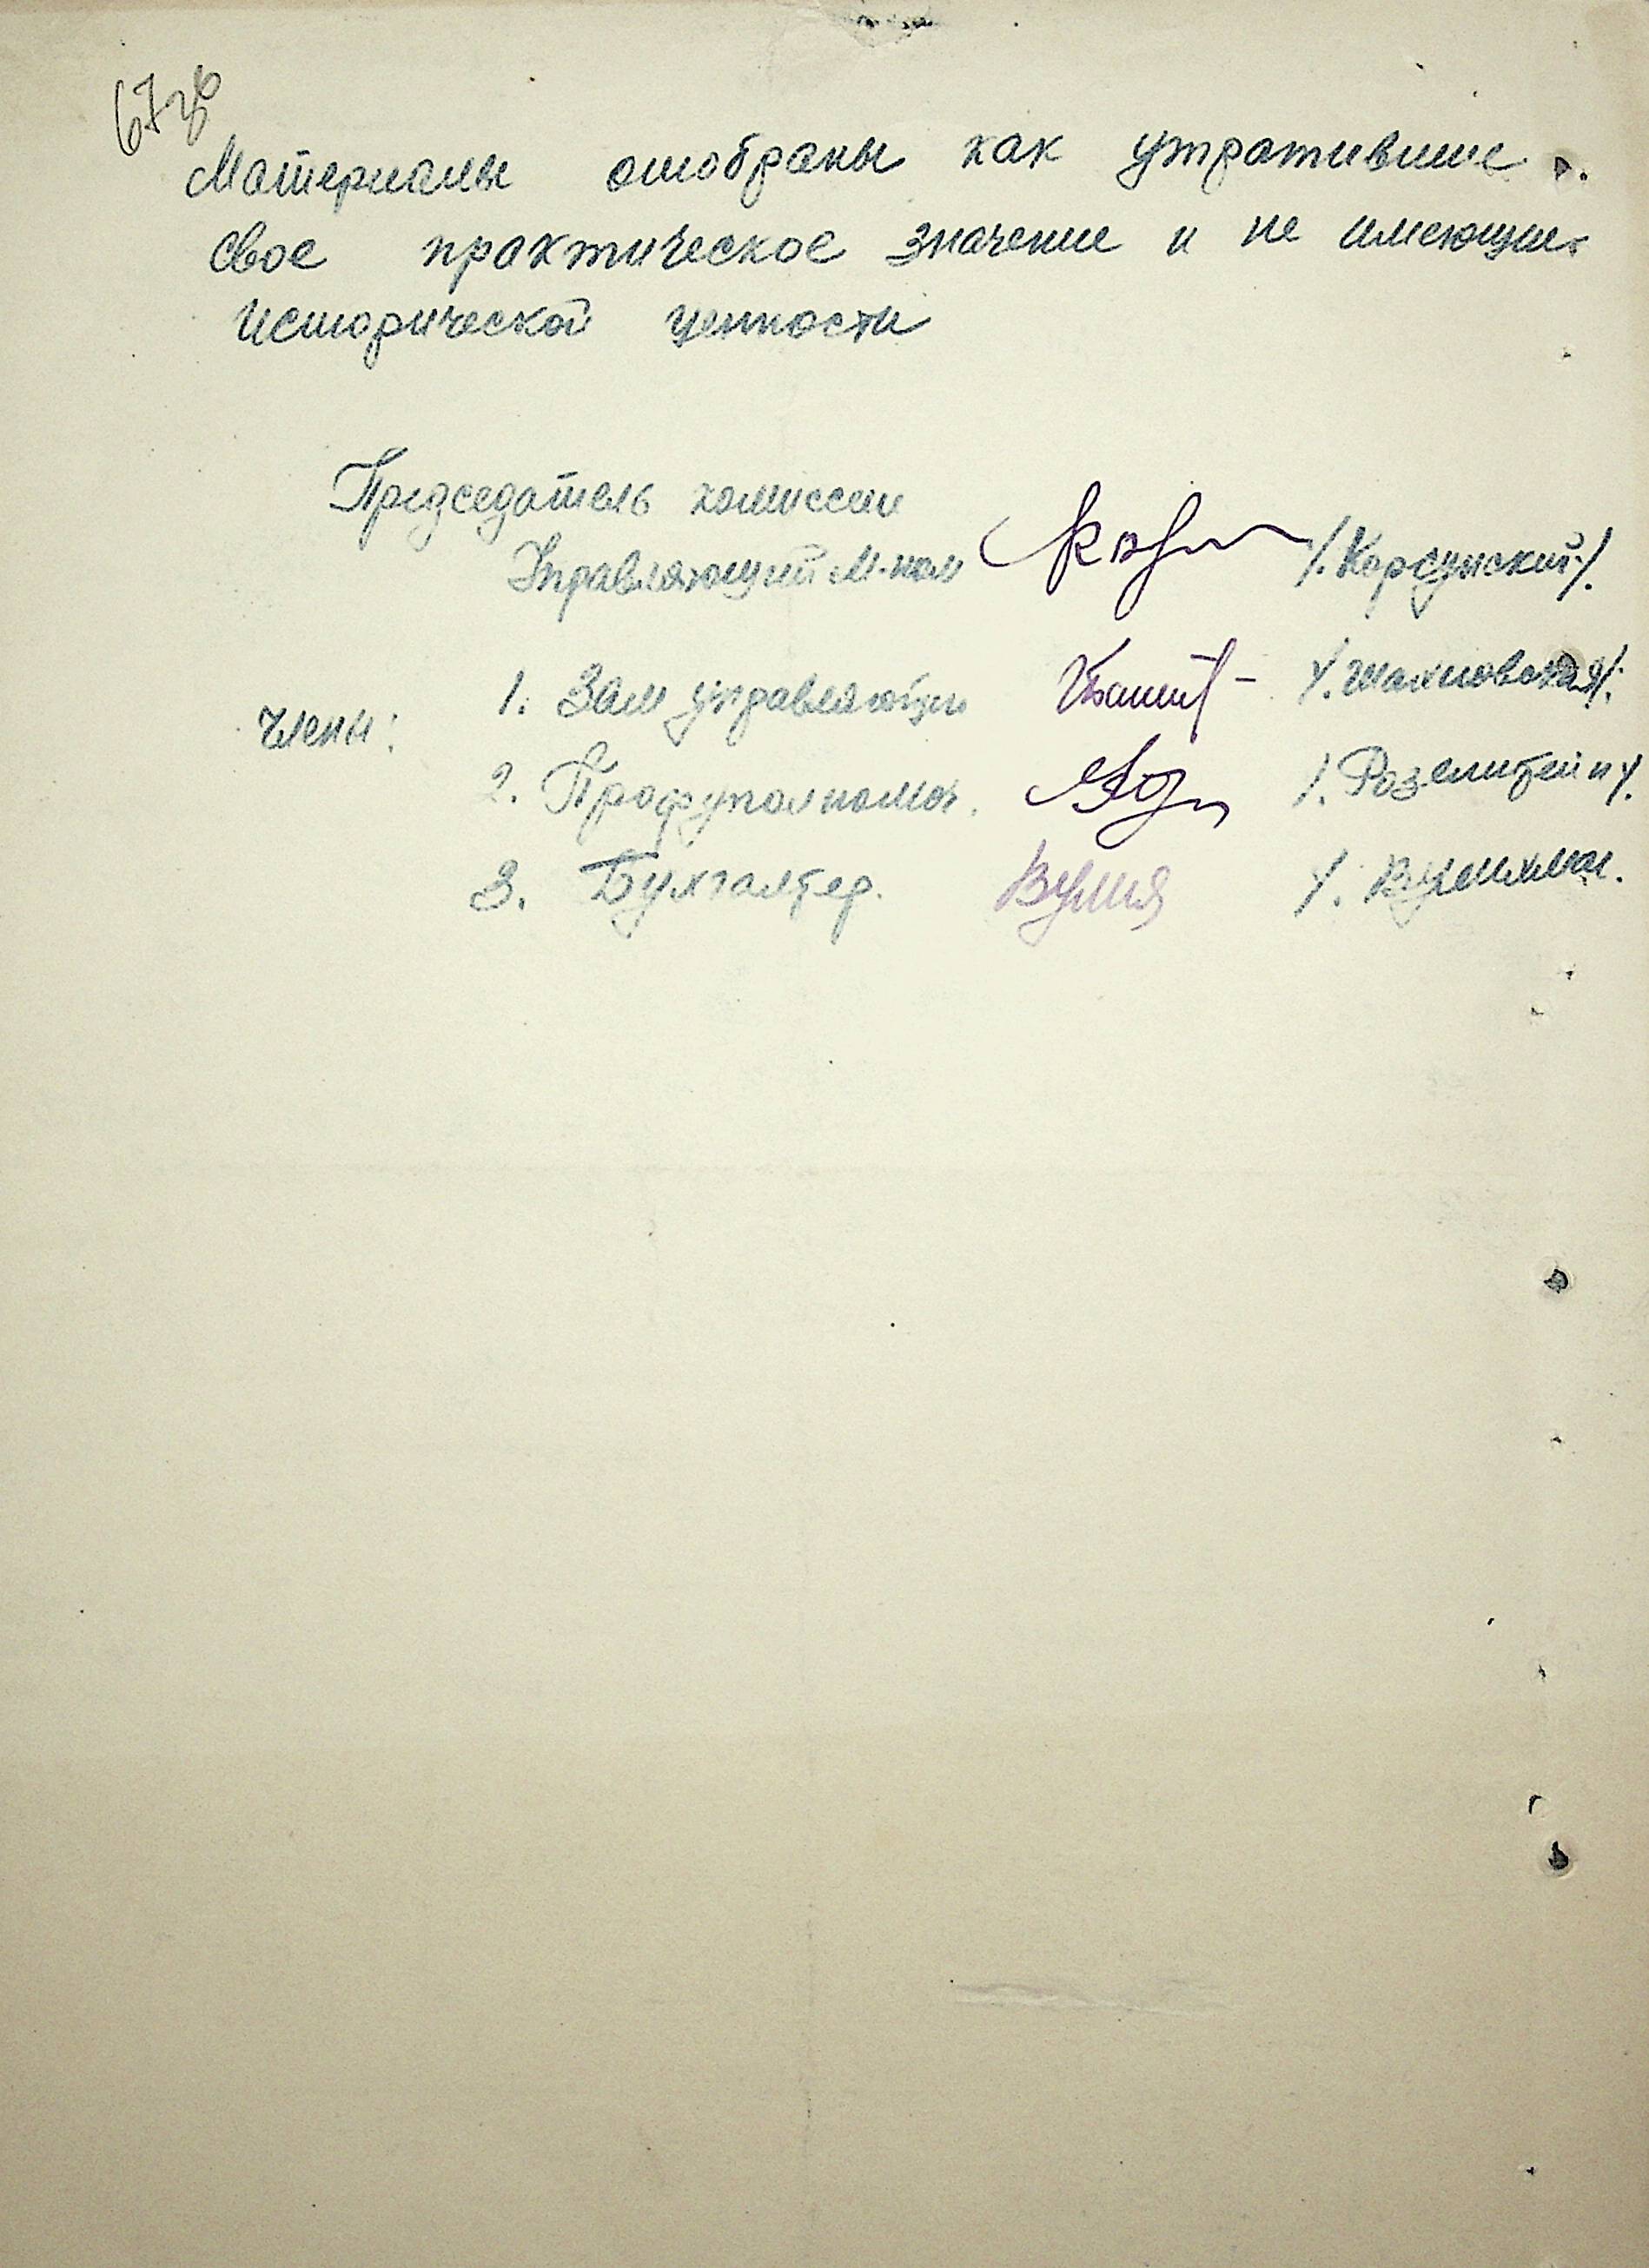 67об
Материалы отобраны как утратившие
свое практическое значение и не имеющих
исторической ценности
Председатель комиссии
Управляющий М-ном /.Корсунский./
Члены: 1. Зам управляющ /.Шахновская/.
2. Профуполномоч. /.Розенштейн/.
3. Бухгалтер.